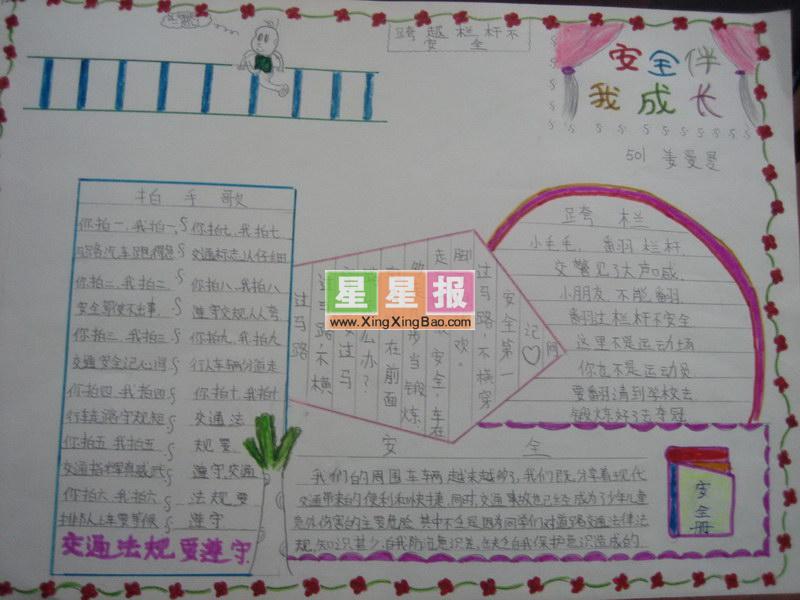 跨越栏杆不
安全
安全伴
我成长
501 姜
拍手歌
你拍一,我拍一,
你拍七,我拍七
交通标志认仔细
你拍二,我拍二
你拍八,我拍八
安全
遵守交规人人夸
你拍三,我拍三
你拍九,我拍九
交通安全记心间
行人车辆分道走
你拍四,我拍四
你拍十,我拍十
行走
交通法
你拍五,我拍五
规要
交通指挥
遵守交通
你拍六,我拍六
法规要
排队上车要等候
遵守
交通法规要遵守
过马路
安全第一
记心间
过马路,不横穿
星星报
www.XingXingBao.com
跨栏
小毛毛,翻羽栏杆
交警见了大声喊,
小朋友,不能翻
翻过栏杆不安全
这里不是运动场
你也不是运动员
要翻请到学校去
锻炼好了去夺冠
安全
我们的周围车辆越来越多了,我们既分享着现代
交通带来的便利和快捷,同时,交通事故也已经成为了少年儿童
意外伤害的主要危险,其中不乏是因为同学们对道路交通法律法
规,知识只甚少,自我防范意识差,缺乏自我保护意识造成的.
安全册